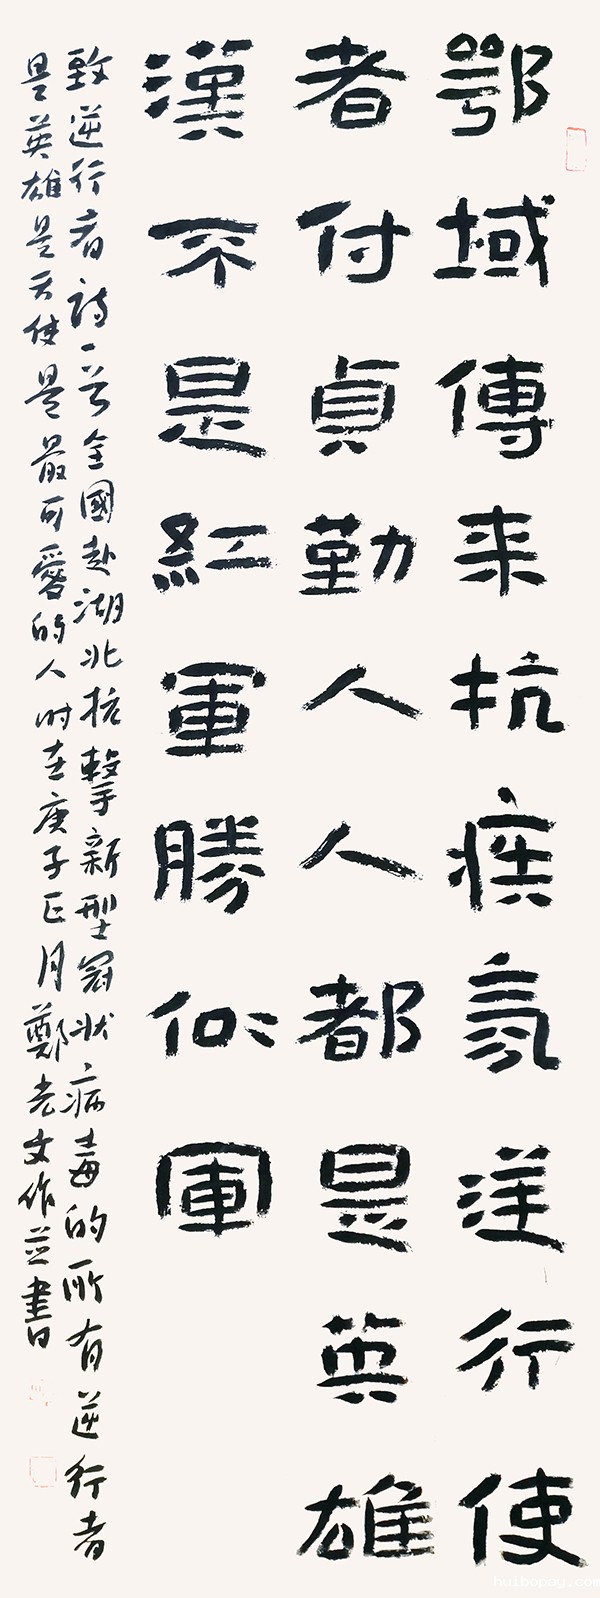 鄂域傳来抗疾氛逆行使
者付貞勤人人都是英雄
漢不是紅軍勝似〻軍
致逆行者詩一首全國赴湖北抗擊新型冠状病毒的所有逆行者
是英雄是天使是最可愛的人时在庚子正月鄭老文作並書
huibopay.com